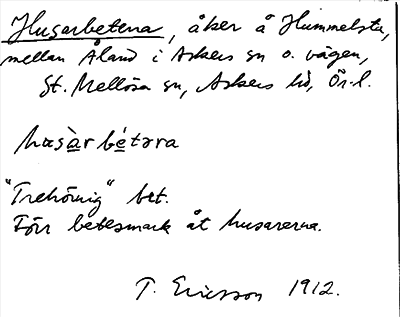 Husarbetena, åker å Hummelsta,
mellan Åland i Askers sn o. vägen,
St. Mellösa sn, Askers hd, Ör. l.
husàrbétəra
"Trehörnig" bet.
Förr betesmark åt husarerna.
T. Ericsson 1912.